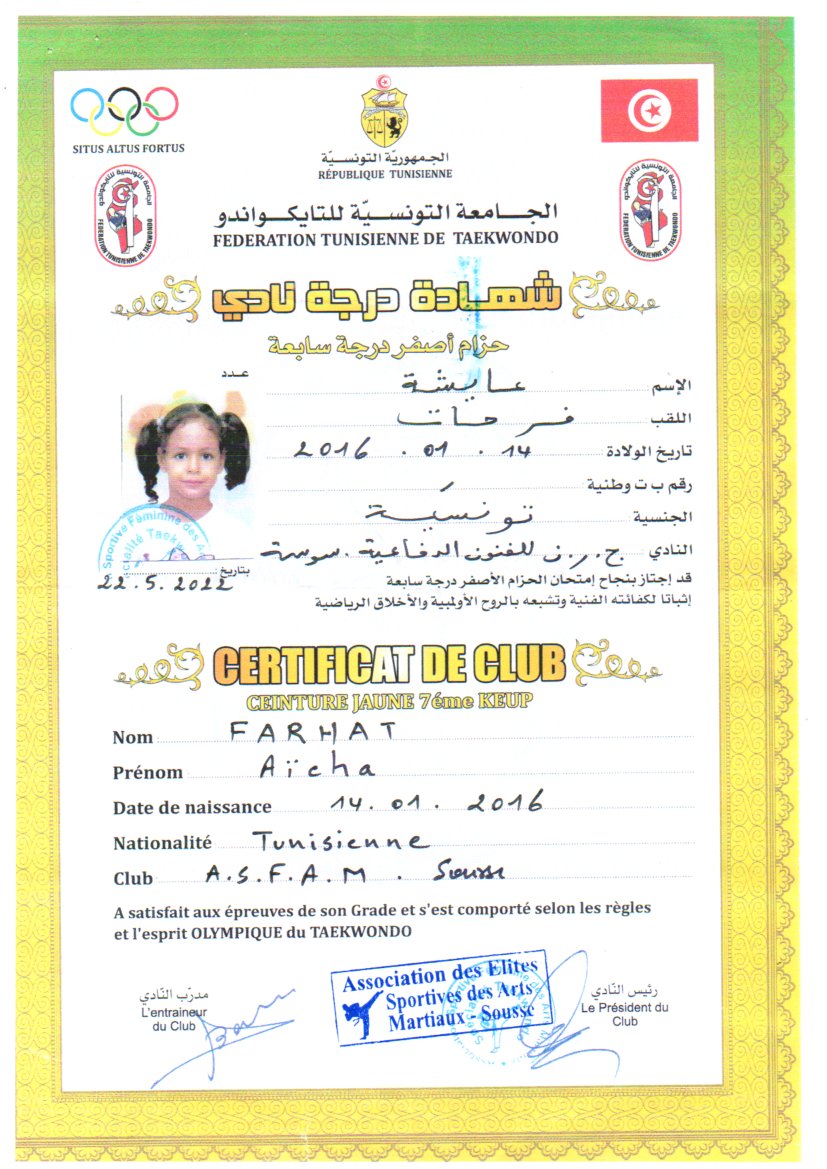 SITUS ALTUS FORTUS
الجمهورية التونسية
RÉPUBLIQUE TUNISIENNE
الجامعة التونسية للتايكواندو
FEDERATION TUNISIENNE DE TAEKWONDO
الجامعة التونسية للتايكواندو
FEDERATION TUNISIENNE DE TAEKWONDO
الجامعة التونسيّة للتايكواندو
FEDERATION TUNISIENNE DE TAEKWONDO
شهادة درجة نادي
حزام أصفر درجة سابعة
عدد
الإسم عايشة
اللقب فرحات
تاريخ الولادة 14 . 01 . 2016
رقم ب ت وطنية
الجنسية تونسية
النادي ج.ر.ن للفنون الدفاعية . سوسة
Sportive Féminine des
بتاريخ : 22.5.2022
قد إجتاز بنجاح إمتحان الحزام الأصفر درجة سابعة
إثباتا لكفائته الفنية وتشبعه بالروح الأولمبية والأخلاق الرياضية
CERTIFICAT DE CLUB
CEINTURE JAUNE 7éme KEUP
Nom FARHAT
Prénom Aïcha
Date de naissance 14. 01. 2016
Nationalité Tunisienne
Club A.S.F.A.M. Sousse
A satisfait aux épreuves de son Grade et s'est comporté selon les règles
et l'esprit OLYMPIQUE du TAEKWONDO
مدرّب النّادي
L'entraineur
du Club
Association des Elites
Sportives des Arts
Martiaux - Sousse
رئيس النّادي
Le Président du
Club